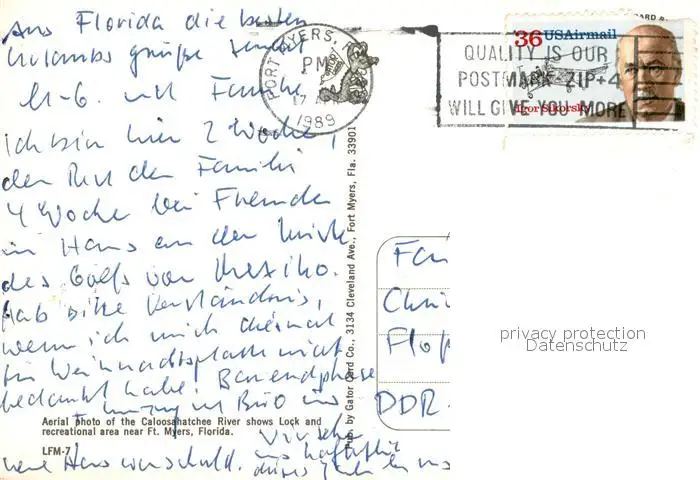 Aus Florida die besten
Urlaubsgrüße sendet
U-G. und Familie
ich bin hier 2 Woche,
der Rest der Familie
4 Woche bei Freunde
im Haus an der Küste
des Golfs von Mexiko.
Hab bitte Verständnis,
wenn ich mich diesmal
für Weihnachtsplatte nicht
bedankt habe! Bauendphase
im Büro und
neue Haus war schuld.
FORT MYERS, F
PM
1989
36 USAirmail
Igor Sikorsky
QUALITY IS OUR
POSTMARK ZIP+4
WILL GIVE YOU MORE
Pub. by Gator Card Co., 3134 Cleveland Ave., Fort Myers, Fla. 33901
Fam
Chri
Flo
DDR
privacy protection
Datenschutz
Aerial photo of the Caloosahatchee River shows Lock and
recreational area near Ft. Myers, Florida.
LFM-7